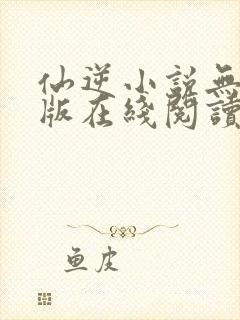 仙逆小說無
版在綫閱讀
鱼皮